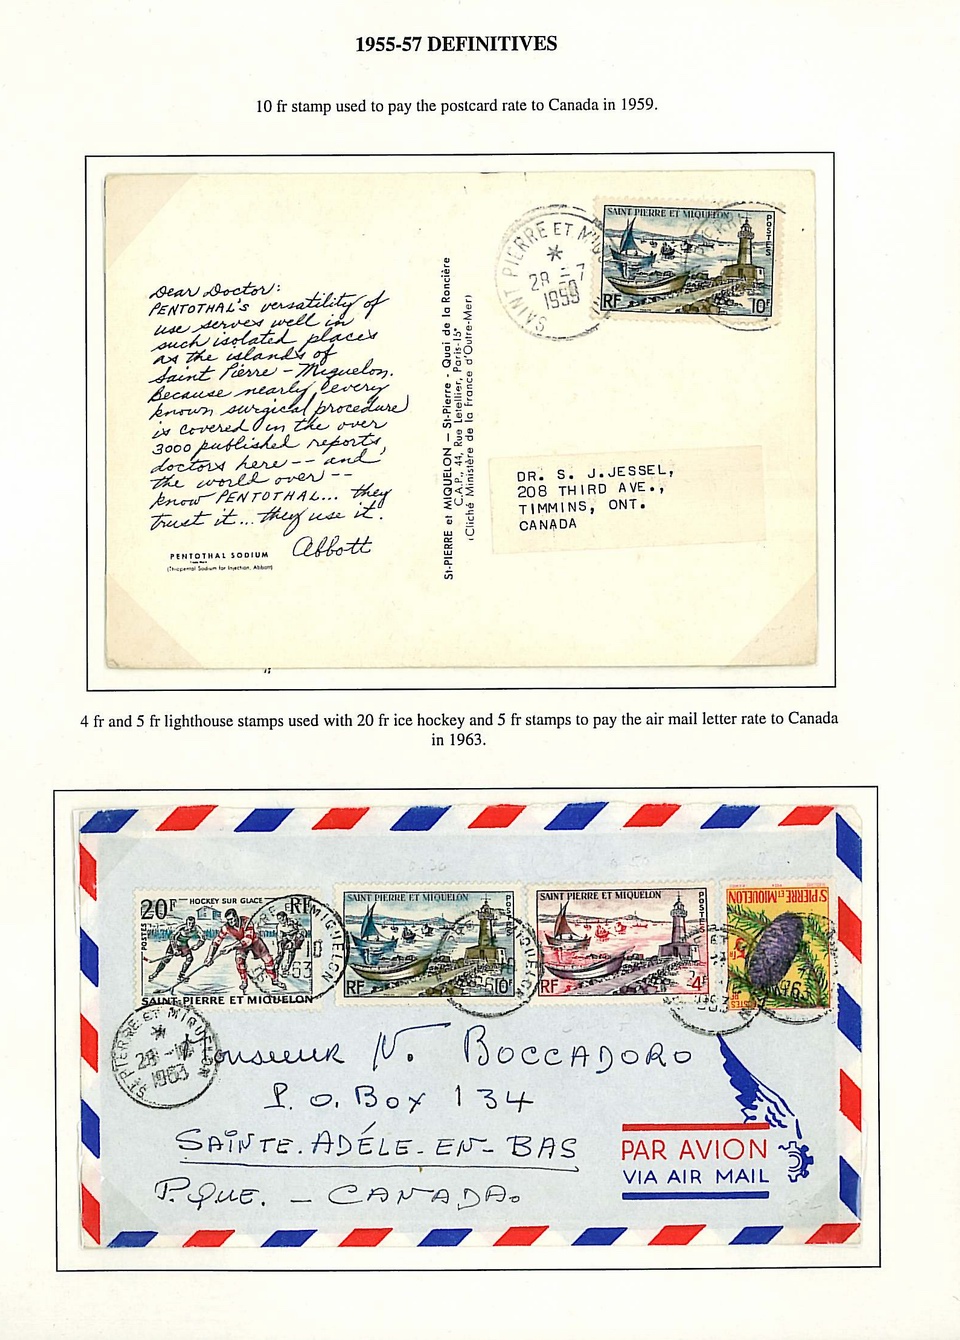 1955-57 DEFINITIVES
10 fr stamp used to pay the postcard rate to Canada in 1959.
SAINT PIERRE ET MIQUELON
POSTES
RF
10F
SAINT PIERRE ET MIQ
*
28 - 7
1959
Dear Doctor:
PENTOTHAL's versatility of
use serves well in
such isolated places
as the islands of
Saint Pierre - Miquelon.
Because nearly every
known surgical procedure
is covered in the over
3000 published reports,
doctors here -- and
the world over --
know PENTOTHAL... they
trust it... they use it.
Abbott
PENTOTHAL SODIUM
(Thiopental Sodium for Injection, Abbott)
St-PIERRE et MIQUELON — St-Pierre - Quai de la Roncière
C.A.P., 44, Rue Letellier, Paris-15e
(Cliché Ministère de la France d'Outre-Mer)
DR. S. J.JESSEL,
208 THIRD AVE.,
TIMMINS, ONT.
CANADA
4 fr and 5 fr lighthouse stamps used with 20 fr ice hockey and 5 fr stamps to pay the air mail letter rate to Canada
in 1963.
20F HOCKEY SUR GLACE RF
POSTES
SAINT-PIERRE ET MIQUELON
SAINT PIERRE ET MIQUELON
POSTES
RF
10F
SAINT PIERRE ET MIQUELON
POSTES
RF
4F
ST PIERRE ET MIQUELON
POSTES
RF
ST PIERRE ET MIQUELON
*
28 - 10
1963
Monsieur N. BOCCADORO
P. O. BOX 134
SAINTE-ADÉLE-EN-BAS
P. QUE. - CANADA
PAR AVION
VIA AIR MAIL